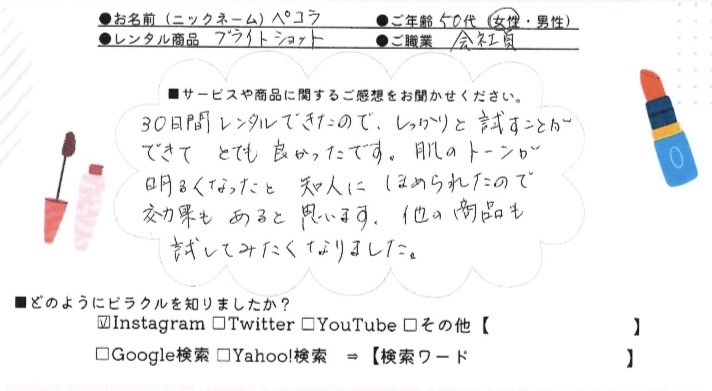 ●お名前（ニックネーム）ペコラ ●ご年齢 50代（女性・男性）
●レンタル商品 ブライトショット ●ご職業 会社員
■サービスや商品に関するご感想をお聞かせください。
30日間レンタルできたので、しっかりと試すことが
できて とても良かったです。肌のトーンが
明るくなったと 知人に ほめられたので
効果も あると思います。他の商品も
試してみたくなりました。
■どのようにピラクルを知りましたか？
☑Instagram □Twitter □YouTube □その他【 】
□Google検索 □Yahoo!検索 ⇒【検索ワード 】